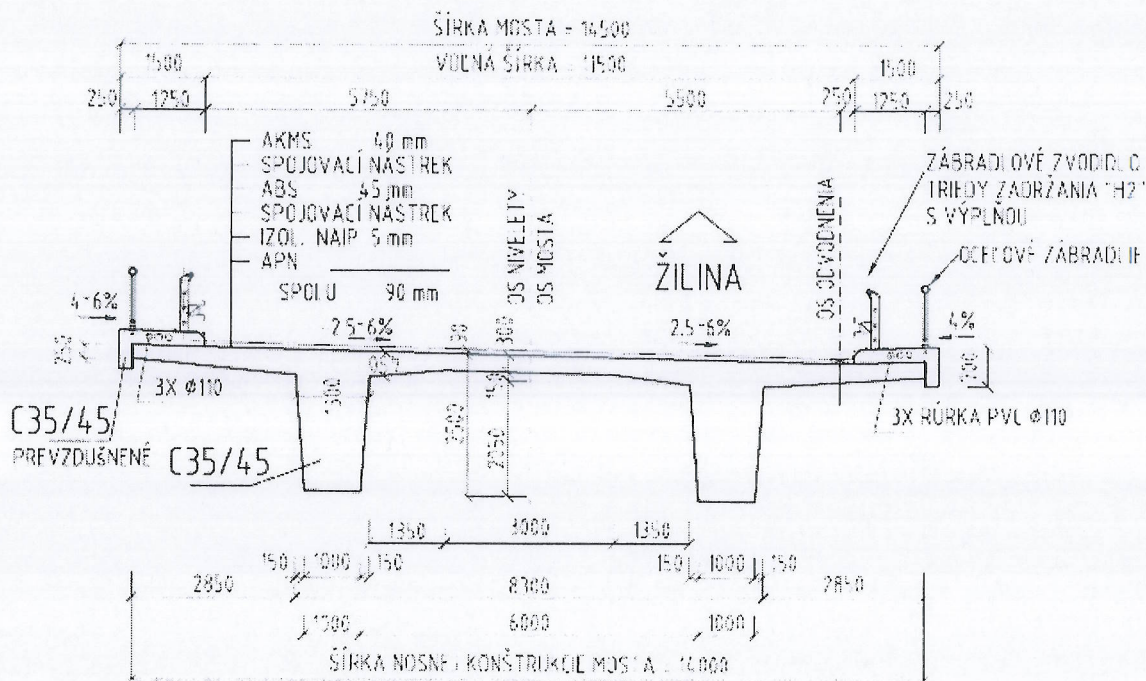 ŠÍRKA MOSTA - 14500
VOĽNÁ ŠÍRKA - 11500
1500
1500
250
1250
5750
5500
250
1250
250
AKMS 40 mm
SPOJOVACÍ NÁSTREK
ABS 45 mm
SPOJOVACÍ NÁSTREK
IZOL. NAIP 5 mm
APN
SPOLU 90 mm
OS NIVELETY
OS MOSTA
ŽILINA
OS ODVODNENIA
ZÁBRADĽOVÉ ZVODIDLO
TRIEDY ZADRŽANIA "H2"
S VÝPLŇOU
OCEĽOVÉ ZÁBRADLIE
4-6%
2.5-6%
2.5-6%
4%
300
2350
3X Φ110
3X RÚRKA PVC Φ110
C35/45
PREVZDUŠNENÉ
C35/45
1350
3000
1350
150
1000
150
150
1000
150
2850
8300
2850
6000
1000
ŠÍRKA NOSNEJ KONŠTRUKCIE MOSTA - 14000